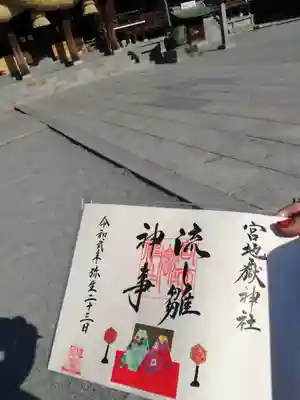 宮地嶽神社
流し雛
神事
令和弐年弥生二十三日